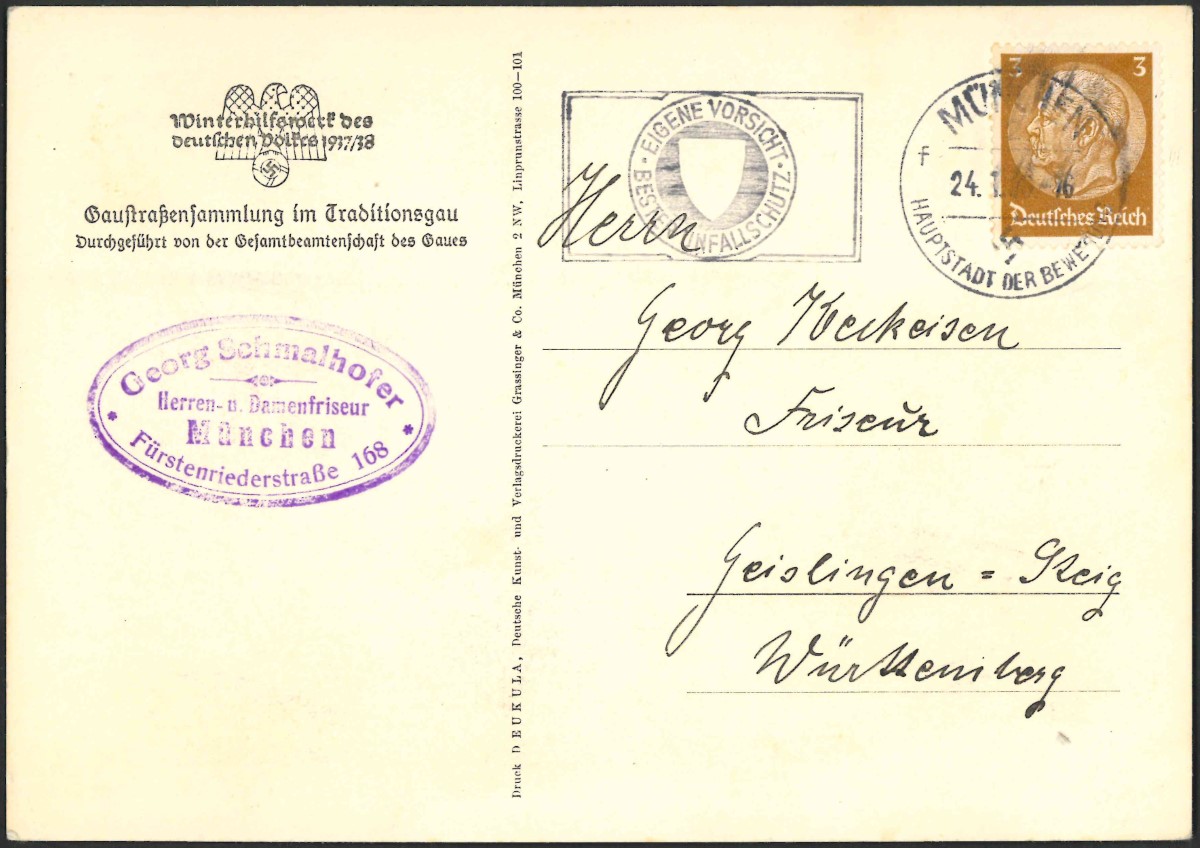 Winterhilfswerk des
deutschen Volkes 1937/38
Gaustraßensammlung im Traditionsgau
Durchgeführt von der Gesamtbeamtenschaft des Gaues
Georg Schmalhofer
Herren- u. Damenfriseur
München
Fürstenriederstraße 168
Druck DEUKULA, Deutsche Kunst- und Verlagsdruckerei Grassinger & Co. München 2 NW, Linprunstrasse 100–101
EIGENE VORSICHT
BESTER UNFALLSCHUTZ
MÜNCHEN
f
24. 16
HAUPTSTADT DER BEWEGUNG
3 3
Deutsches Reich
Herrn
Georg Keckeisen
Friseur
Geislingen = Steig
Württemberg